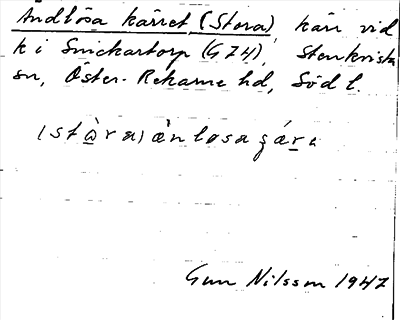 Ändlösa kärret (Stora), kärr vid
k i Snickartorp (G24), Stenkvista
sn, Öster-Rekarne hd, Södl.
(stὼra) ä̀nløsa ɟǽrə
Gun Nilsson 1947